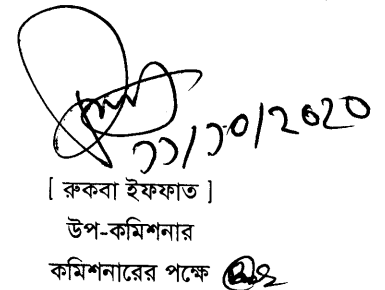 ১১/১০/২০২০
[ রুকবা ইফফাত ]
উপ-কমিশনার
কমিশনারের পক্ষে